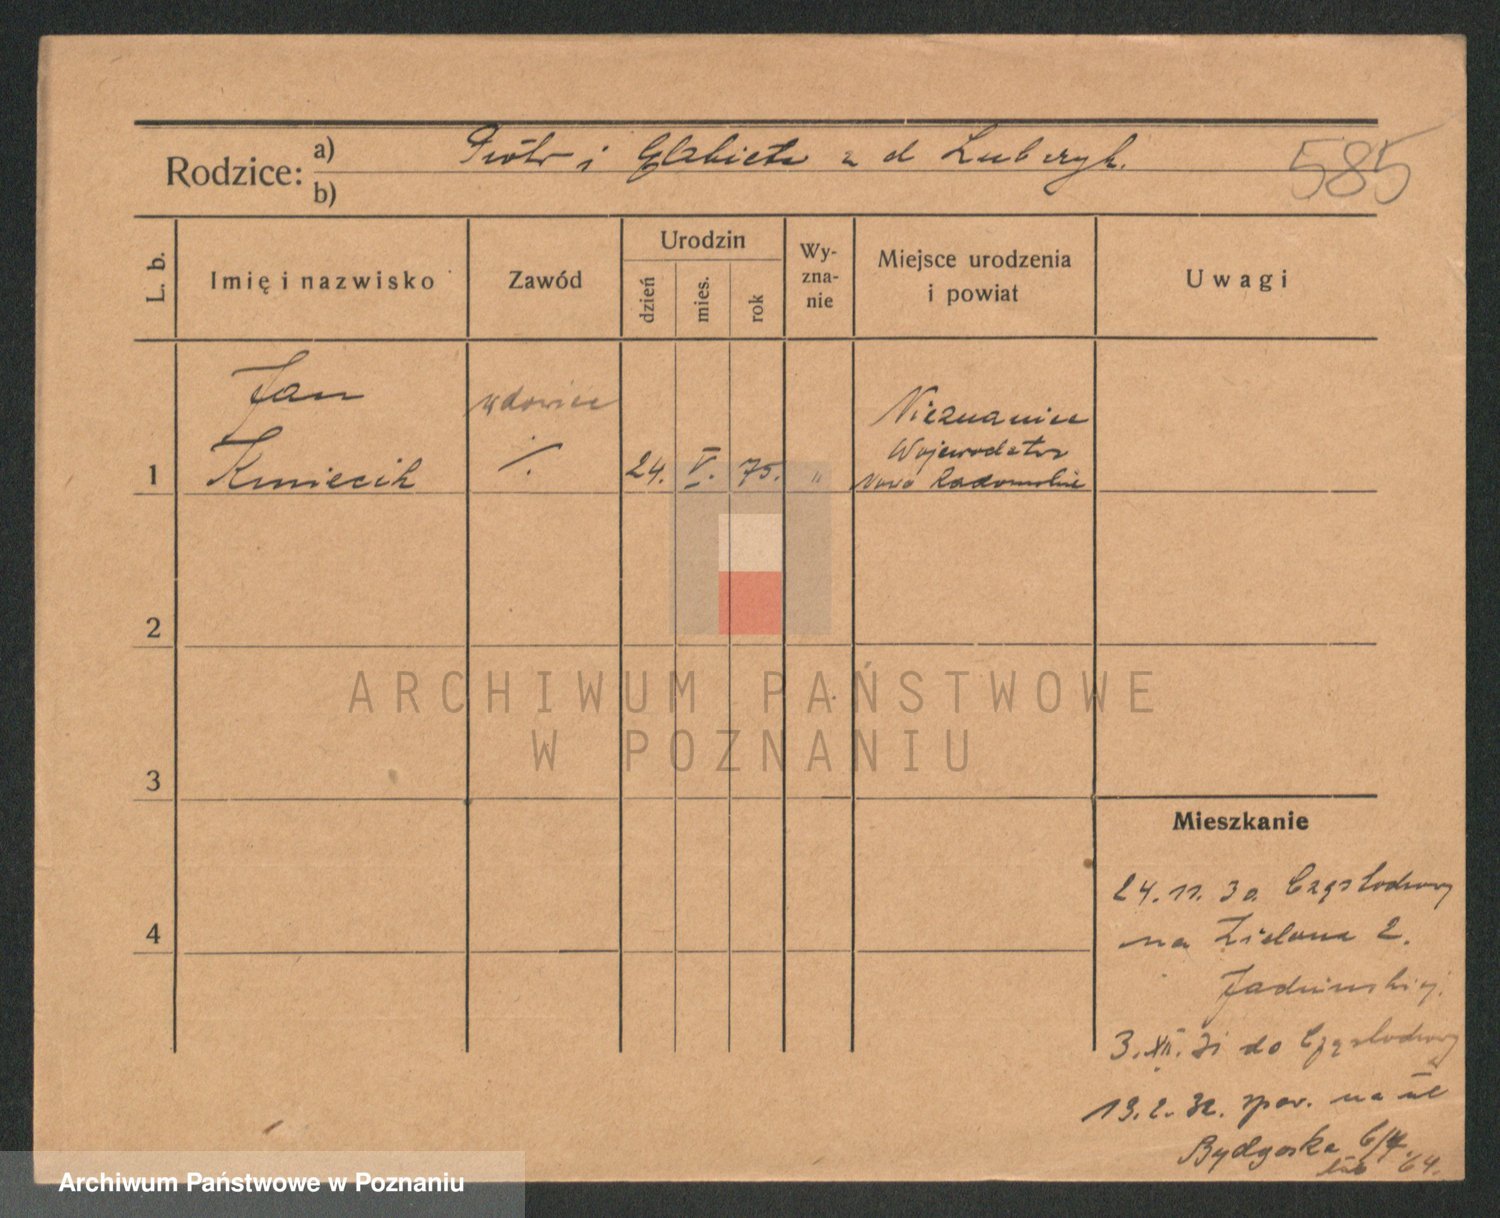 Rodzice: a) Piotr i Elżbieta z d Lubczyk.
b)
585
L. b.
Imię i nazwisko
Zawód
Urodzin
dzień
mies.
rok
Wy-
zna-
nie
Miejsce urodzenia
i powiat
Uwagi
Jan
wdowiec
Nieznanice
Wojewodztw
1 Kmiecik ./. 24. V. 75. " Nowo Radomskie
2
3
4
ARCHIWUM PAŃSTWOWE
W POZNANIU
Mieszkanie
24. 11. 30. Częstochowy
na Zielona 2.
3. XII. 31 do Częstochowy
13. 2. 32. spow. na ul
Bydgoska 6/4
Archiwum Państwowe w Poznaniu